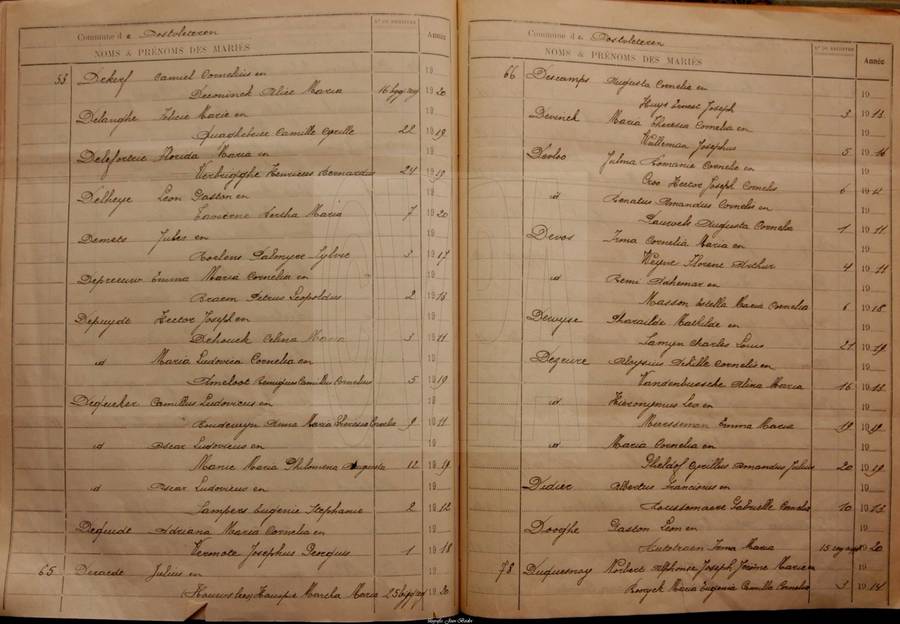 Commune de Oostvleteren
Nº DU REGISTRE
Année
NOMS & PRÉNOMS DES MARIÉS
19
53 Dekerf Camiel Cornelius en
Deconinck Alice Maria 16 1920
Delanghe Felicie Marie en 19
Quaghebeur Camille Cyrille 22 1919
Deleforterie Florida Maria en 19
Verbrigghe Henricus Bernardus 24 1919
Delheye Leon Gaston en 19
Bertha Maria 7 1920
Demets Jules en 19
Roelens Palmyre Sylvie 3 1917
Depreeuw Emma Maria Cornelia en 19
Braem Petrus Leopoldus 2 1918
Depuydt Hector Joseph en 19
Dehouck Celina Maria 3 1911
id Maria Ludovica Cornelia en 19
Ameloot Remigius Camillus Cornelius 5 1919
Dequeker Camillus Ludovicus en 19
Boudewyn Anna Maria Theresia Cornelia 9 1911
id Oscar Ludovicus en 19
Manie Maria Philomena Augusta 12 1919
id Oscar Ludovicus en 19
Lampers Eugenie Stephanie 2 1912
Dequidt Adriana Maria Cornelia en 19
Vermote Josephus Georgius 1 1918
65 Deraedt Julius en 19
Martha Maria 25 1920
Commune de Oostvleteren
Nº DU REGISTRE
Année
NOMS & PRÉNOMS DES MARIÉS
66 Descamps Augusta Cornelia en 19
Huys Ernest Joseph 3 1913
Devinck Maria Theresia Cornelia en 19
Wulleman Josephus 5 1916
Devloo Julma Romanie Cornelie en 19
Croo Hector Joseph Cornelis 6 1912
id Renatus Amandus Cornelis en 19
Pauwels Augusta Cornelia 1 1911
Devos Irma Cornelia Maria en 19
Weyne Florent Arthur 4 1911
id Remi Adhemar en 19
Masson Estella Maria Cornelia 6 1918
Dewyse Pharailde Mathilde en 19
Lamyn Charles Louis 21 1919
Dezeure Aloysius Achille Cornelis en 19
Vandenbussche Alina Maria 16 1913
id Hieronymus Leo en 19
Meresseman Emma Maria 19 1919
id Maria Cornelia en 19
Gheldof Cyrillus Amandus Julius 20 1919
Didier Albertus Franciscus en 19
Toussemaere Gabrielle Cornelia 10 1913
Dooghe Gaston Leon en 19
Autotraen Irma Maria 15 1920
78 Duquesnoy Norbert Alphonse Joseph Jérôme Marie en 19
Maria Eugenia Camilla Cornelia 3 1914